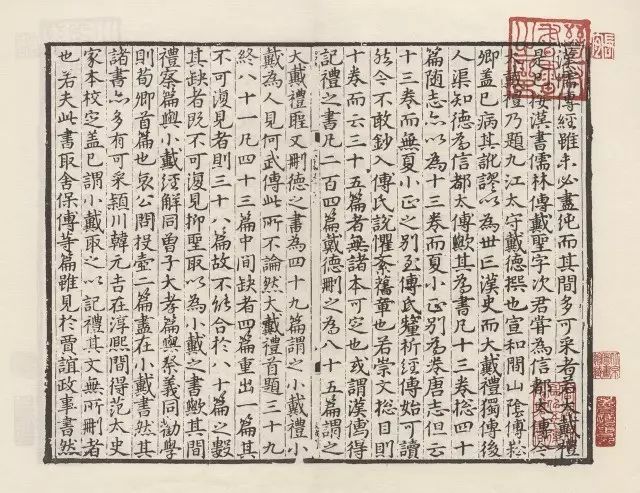 漢儒傳經雖未必盡純而其間多可采者若大戴禮
是已按漢書儒林傳戴聖字次君嘗為信都太傅今
大戴禮乃題九江太守戴德撰也宣和間山陰傅崧
卿蓋已病其訛謬以為世三漢史而大戴禮獨傳後
人渠知德為信都太傅歟其為書凡十三卷捴四十
篇隨志亦以為十三卷而夏小正別為卷唐志但云
十三卷而無夏小正之別至傅氏釐析經傳始可讀
然今不敢鈔入傅氏說懼紊舊章也若崇文総目則
十卷而云三十五篇者無諸本可定也或謂漢儒得
記禮之書凡二百四篇戴德刪之為八十五篇謂之
大戴禮聖又刪德之書為四十九篇謂之小戴禮小
戴為人見何武傳此所不論然大戴禮首題三十九
終八十一凡四十三篇中間缺者四篇重出一篇其
不可復見者則三十八篇故不能合於八十篇之數
其缺者既不可復見抑聖取以為小戴之書歟其間
禮察篇與小戴經解同曾子大孝篇與祭義同勸學
則荀卿首篇也哀公問投壺二篇盡在小戴書然其
諸書亦多有可采潁川韓元吉在淳熙間得范太史
家本校定蓋已謂小戴取之以記禮其文無所刪者
也若夫此書取舍保傅等篇雖見於賈誼政事書然